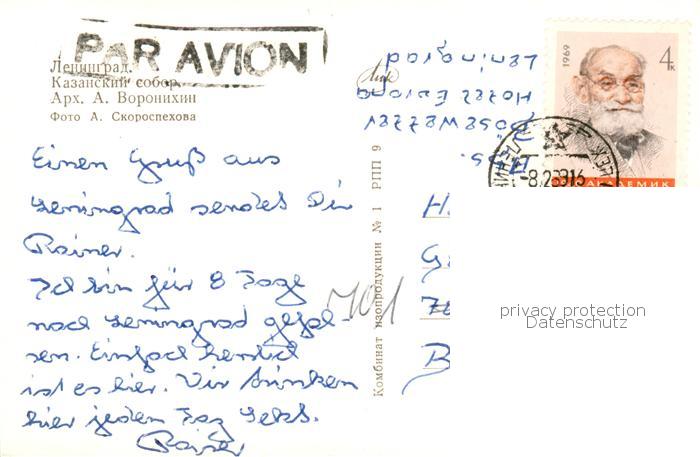 PAR AVION
Ленинград.
Казанский собор.
Арх. А. Воронихин
Фото А. Скороспехова
Einen Gruß aus
Leningrad sendet Dir
Rainer.
Ich bin für 8 Tage
nach Leningrad geflo-
gen. Einfach herrlich
ist es hier. Wir trinken
hier jeden Tag Sekt.
Rainer
Комбинат цветной изопродукции № 1 РПП 9
701
Abs.
Hotel Europa
Leningrad
1969
4к
АКАДЕМИК
-8.2.6916
H.
G
B
privacy protection
Datenschutz